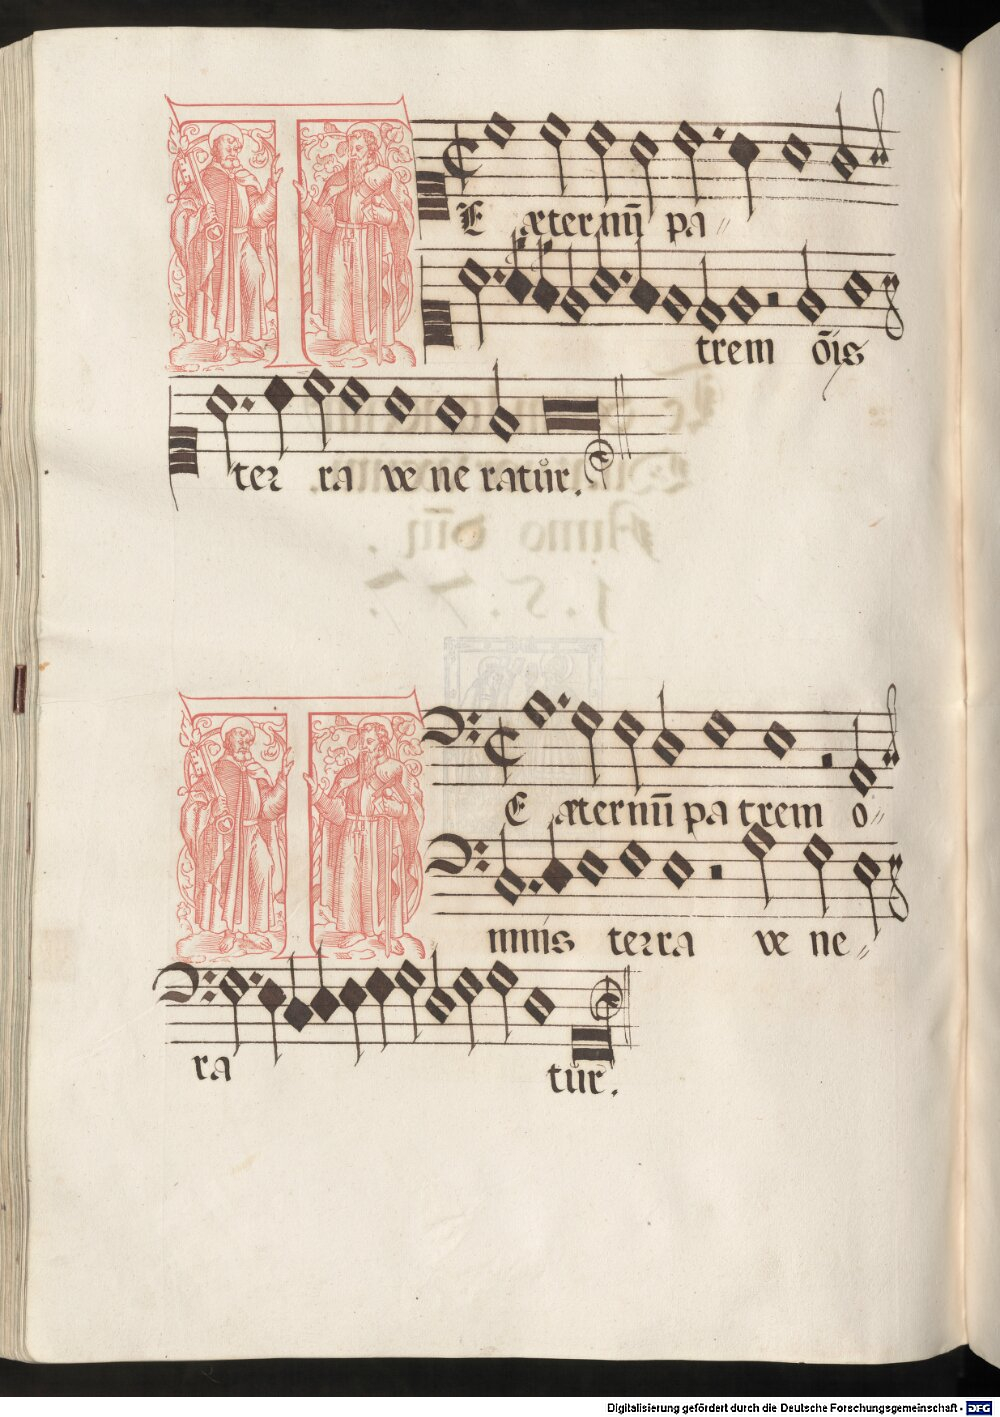 TE æternū pa
trem ōis
ter ra ve ne ratur.
TE æternū pa trem o
mnis terra ve ne
ra tur.
Digitalisierung gefördert durch die Deutsche Forschungsgemeinschaft - DFG